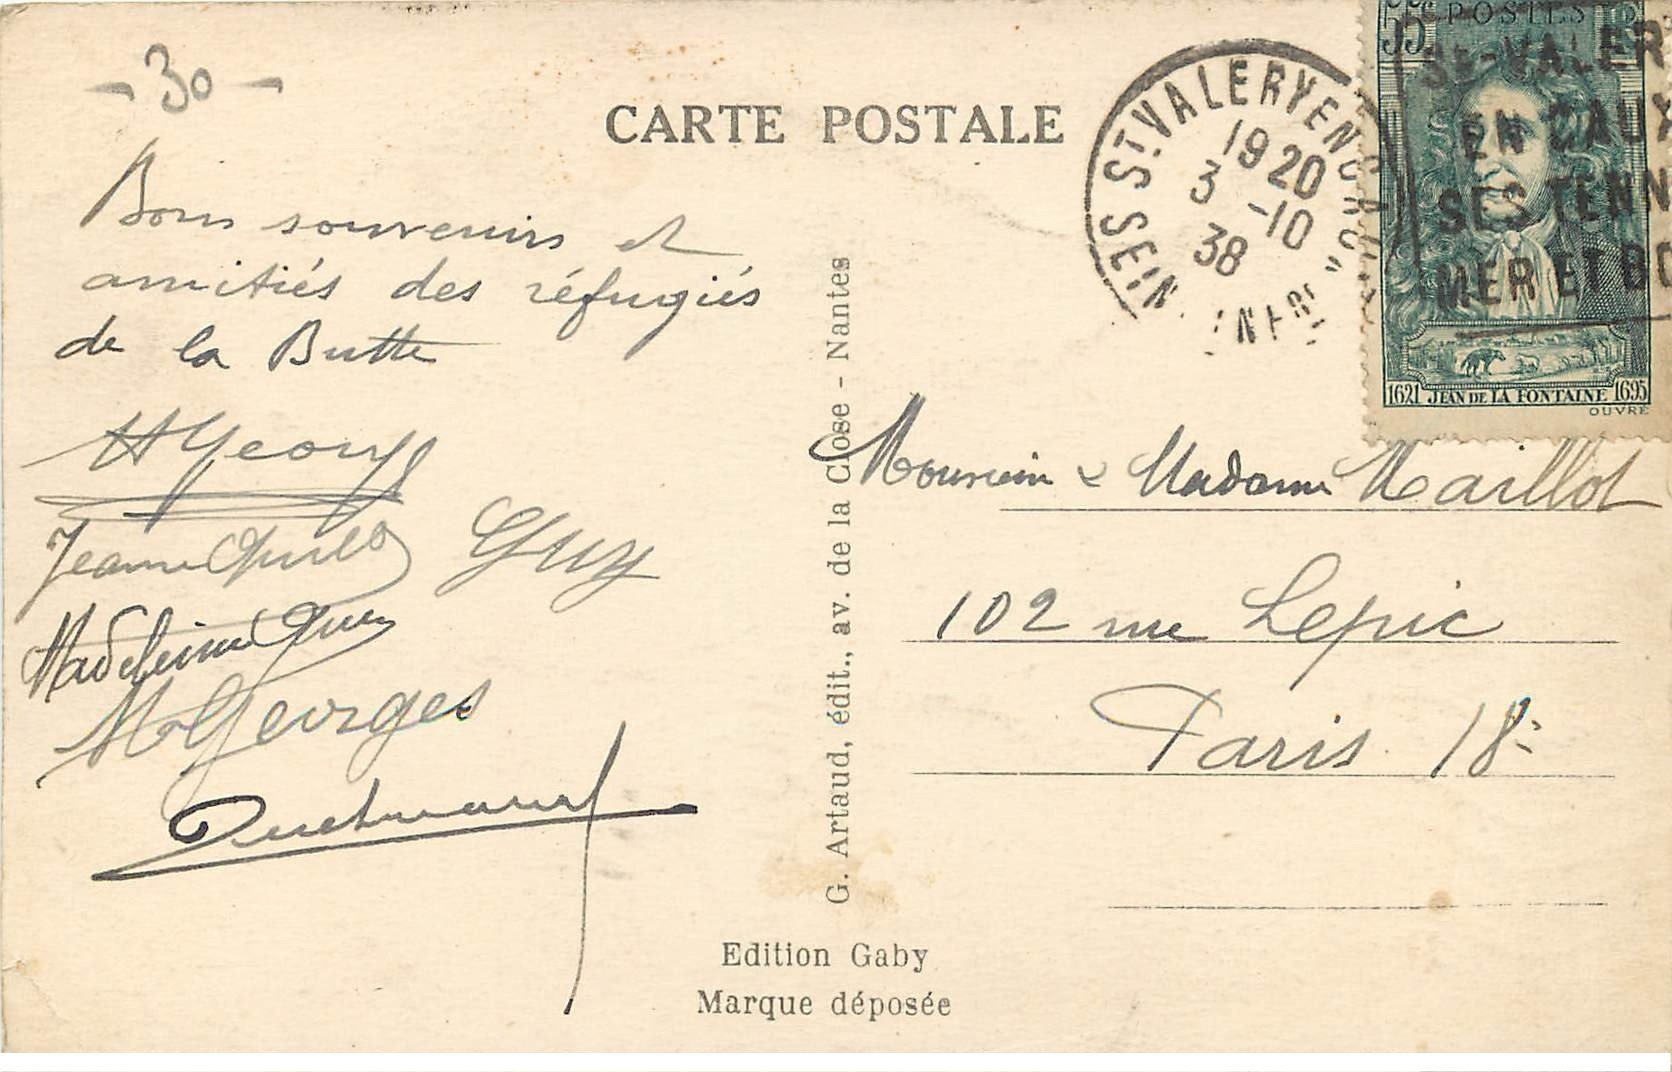 - 30 -
CARTE POSTALE
Bons souvenirs et
amitiés des réfugiés
de la Butte
Jeanne
Guy
Madeleine
M Georges
G. Artaud, édit., av. de la Close - Nantes
Edition Gaby
Marque déposée
ST VALERY EN CAUX
SEINE INFRE
19 20
3 -10
38
55c POSTES
ST-VALER
EN CAUX
SES TENN
MER ET BO
1621 JEAN DE LA FONTAINE 1695
OUVRÉ
Monsieur & Madame Maillot
102 rue Lepic
Paris 18e